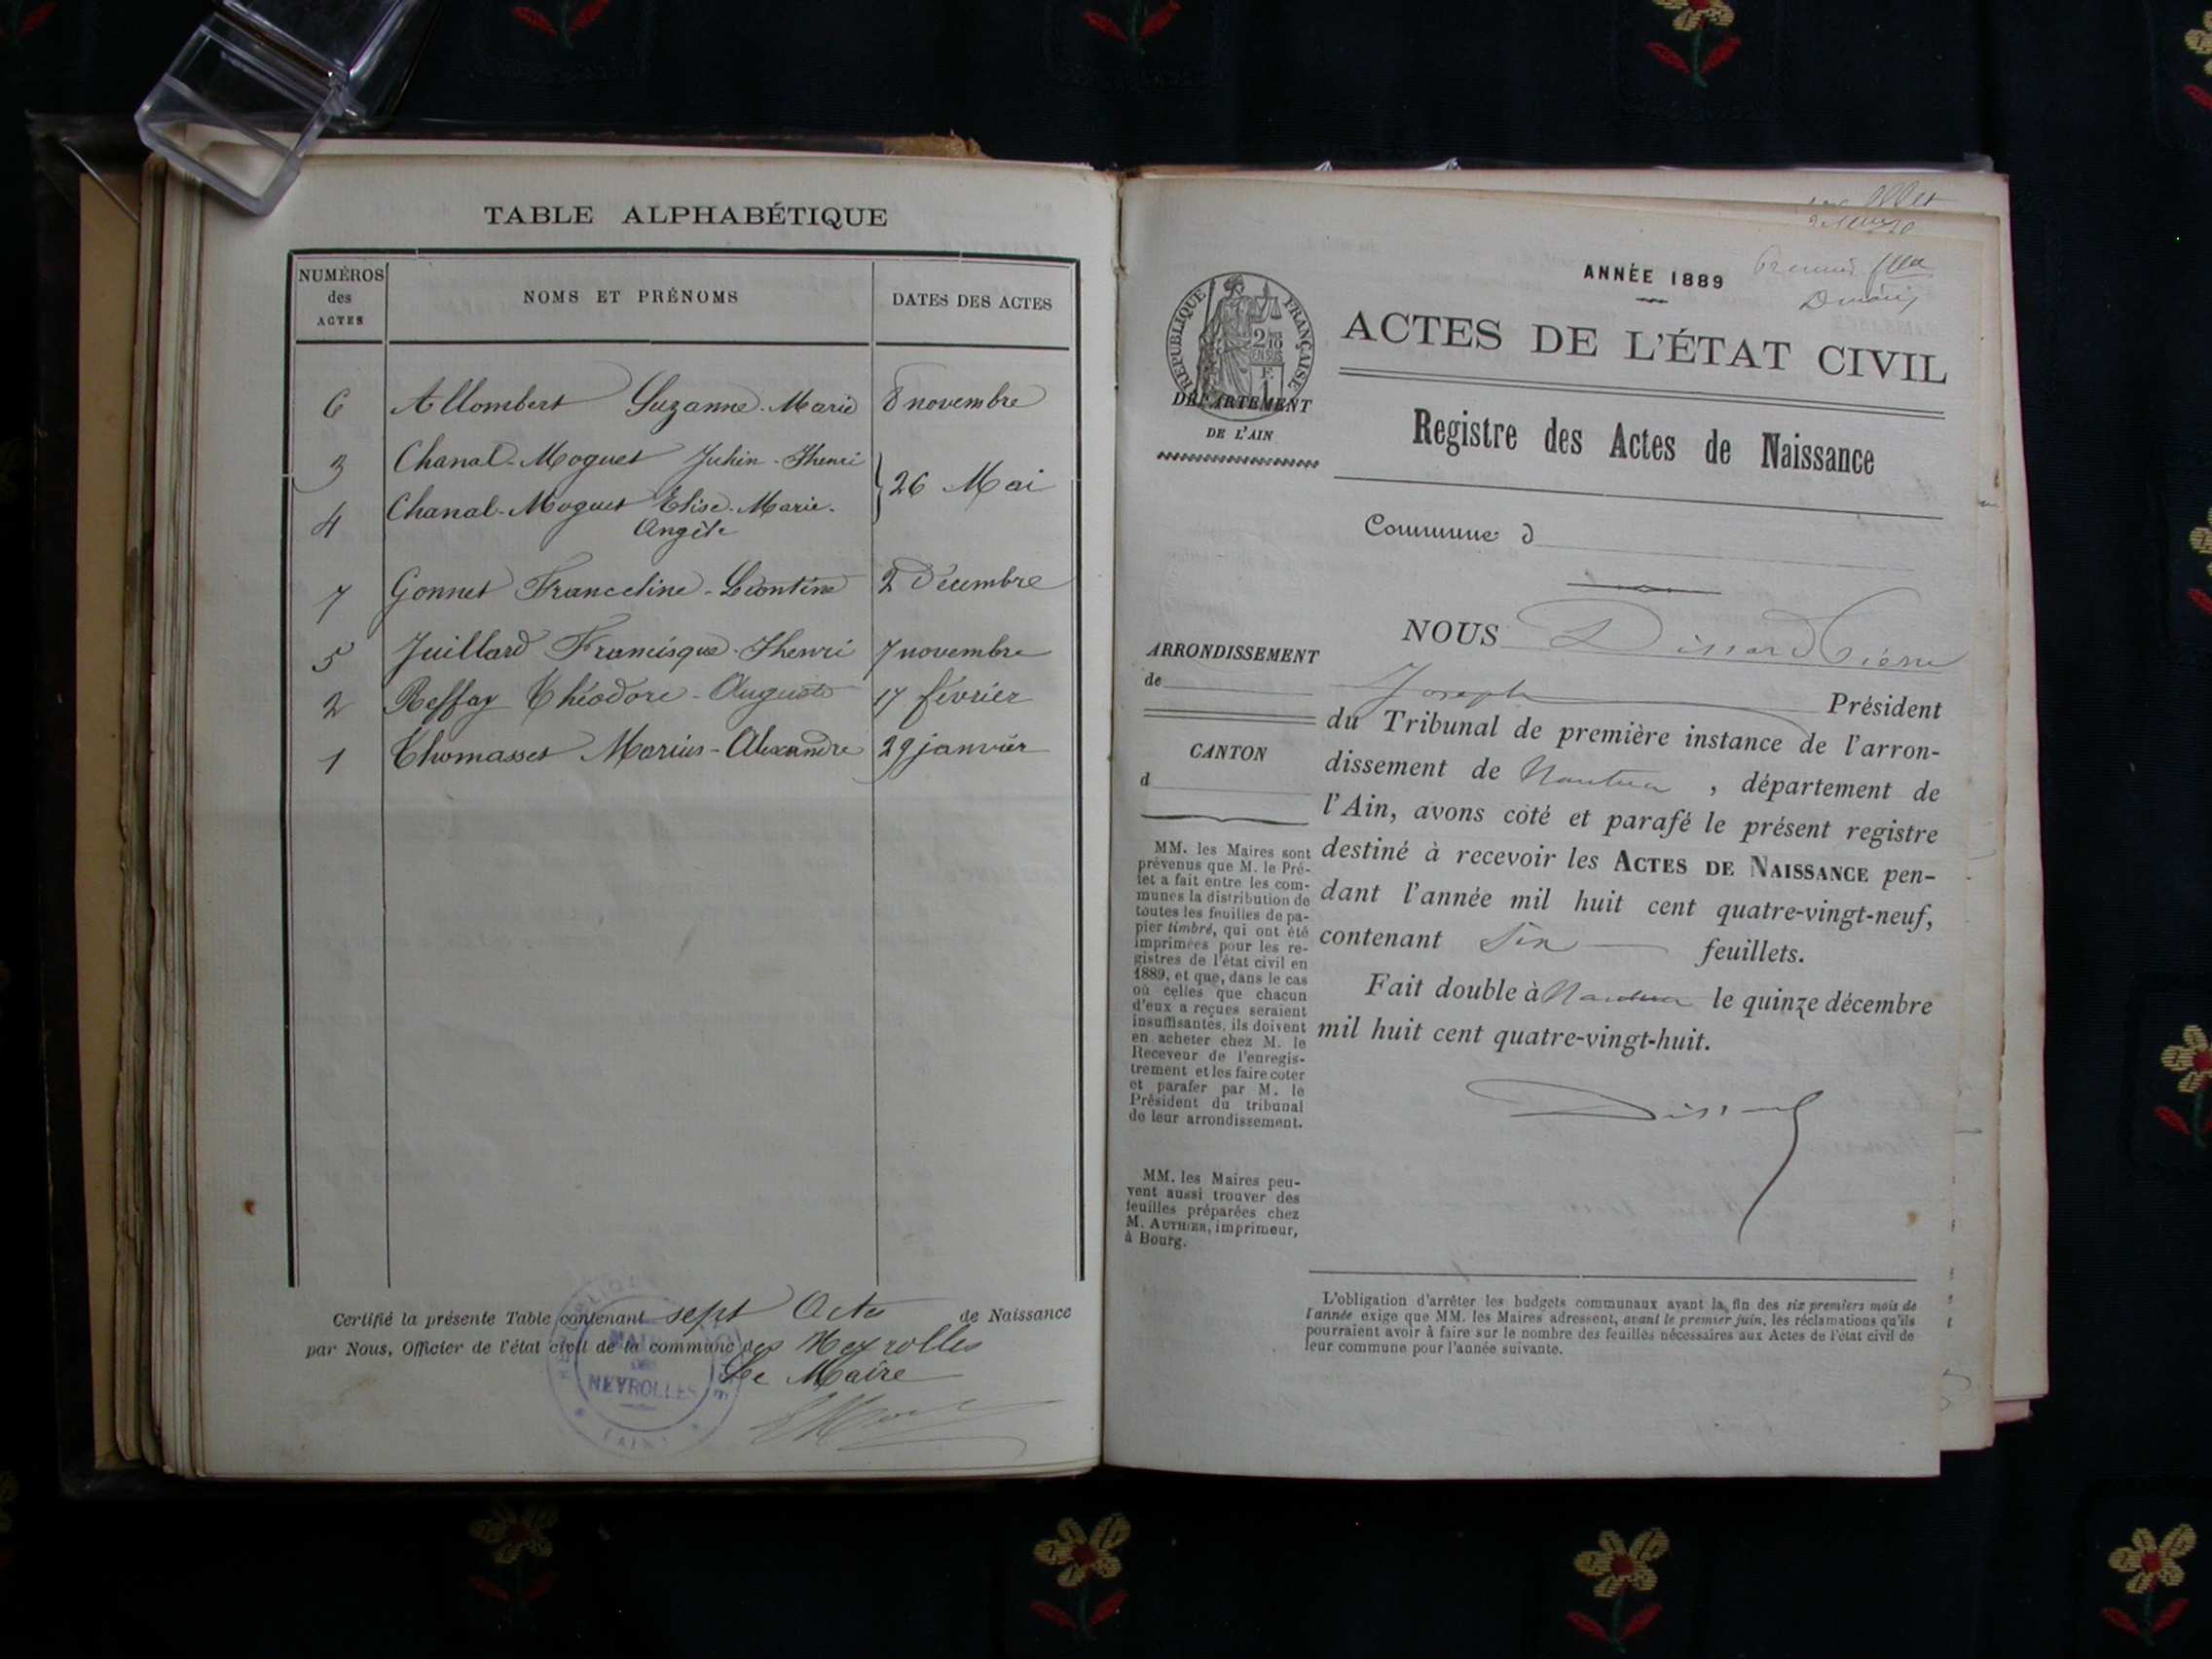 TABLE ALPHABÉTIQUE
NUMÉROS des ACTES NOMS ET PRÉNOMS DATES DES ACTES
6 Allombert Suzanne-Marie 8 novembre
3 Chanal-Moguet Julien-Henri
26 Mai
4 Chanal-Moguet Elise-Marie-
Angèle
7 Gonnet Franceline-Léontine 2 Décembre
5 Juillard Francisque-Henri 7 novembre
2 Reffay Théodore-Auguste 17 février
1 Thomasset Marius-Alexandre 29 janvier
Certifié la présente Table contenant sept Actes de Naissance
par Nous, Officier de l'état civil de la commune des Neyrolles
Le Maire
NEYROLLES
(AIN)
ANNÉE 1889
RÉPUBLIQUE FRANÇAISE
ACTES DE L'ÉTAT CIVIL
DÉPARTEMENT
DE L'AIN
Registre des Actes de Naissance
Commune d
NOUS Dissard Pierre
Joseph Président
du Tribunal de première instance de l'arron-
dissement de Nantua, département de
l'Ain, avons coté et parafé le présent registre
destiné à recevoir les ACTES DE NAISSANCE pen-
dant l'année mil huit cent quatre-vingt-neuf,
contenant Six feuillets.
Fait double à Nantua le quinze décembre
mil huit cent quatre-vingt-huit.
Dissard
ARRONDISSEMENT
de
CANTON
d
MM. les Maires sont
prévenus que M. le Pré-
fet a fait entre les com-
munes la distribution de
toutes les feuilles de pa-
pier timbré, qui ont été
imprimées pour les re-
gistres de l'état civil en
1889, et que, dans le cas
où celles que chacun
d'eux a reçues seraient
insuffisantes, ils doivent
en acheter chez M. le
Receveur de l'enregis-
trement et les faire coter
et parafer par M. le
Président du tribunal
de leur arrondissement.
MM. les Maires peu-
vent aussi trouver des
feuilles préparées chez
M. AUTHIER, imprimeur,
à Bourg.
L'obligation d'arrêter les budgets communaux avant la fin des six premiers mois de
l'année exige que MM. les Maires adressent, avant le premier juin, les réclamations qu'ils
pourraient avoir à faire sur le nombre des feuilles nécessaires aux Actes de l'état civil de
leur commune pour l'année suivante.